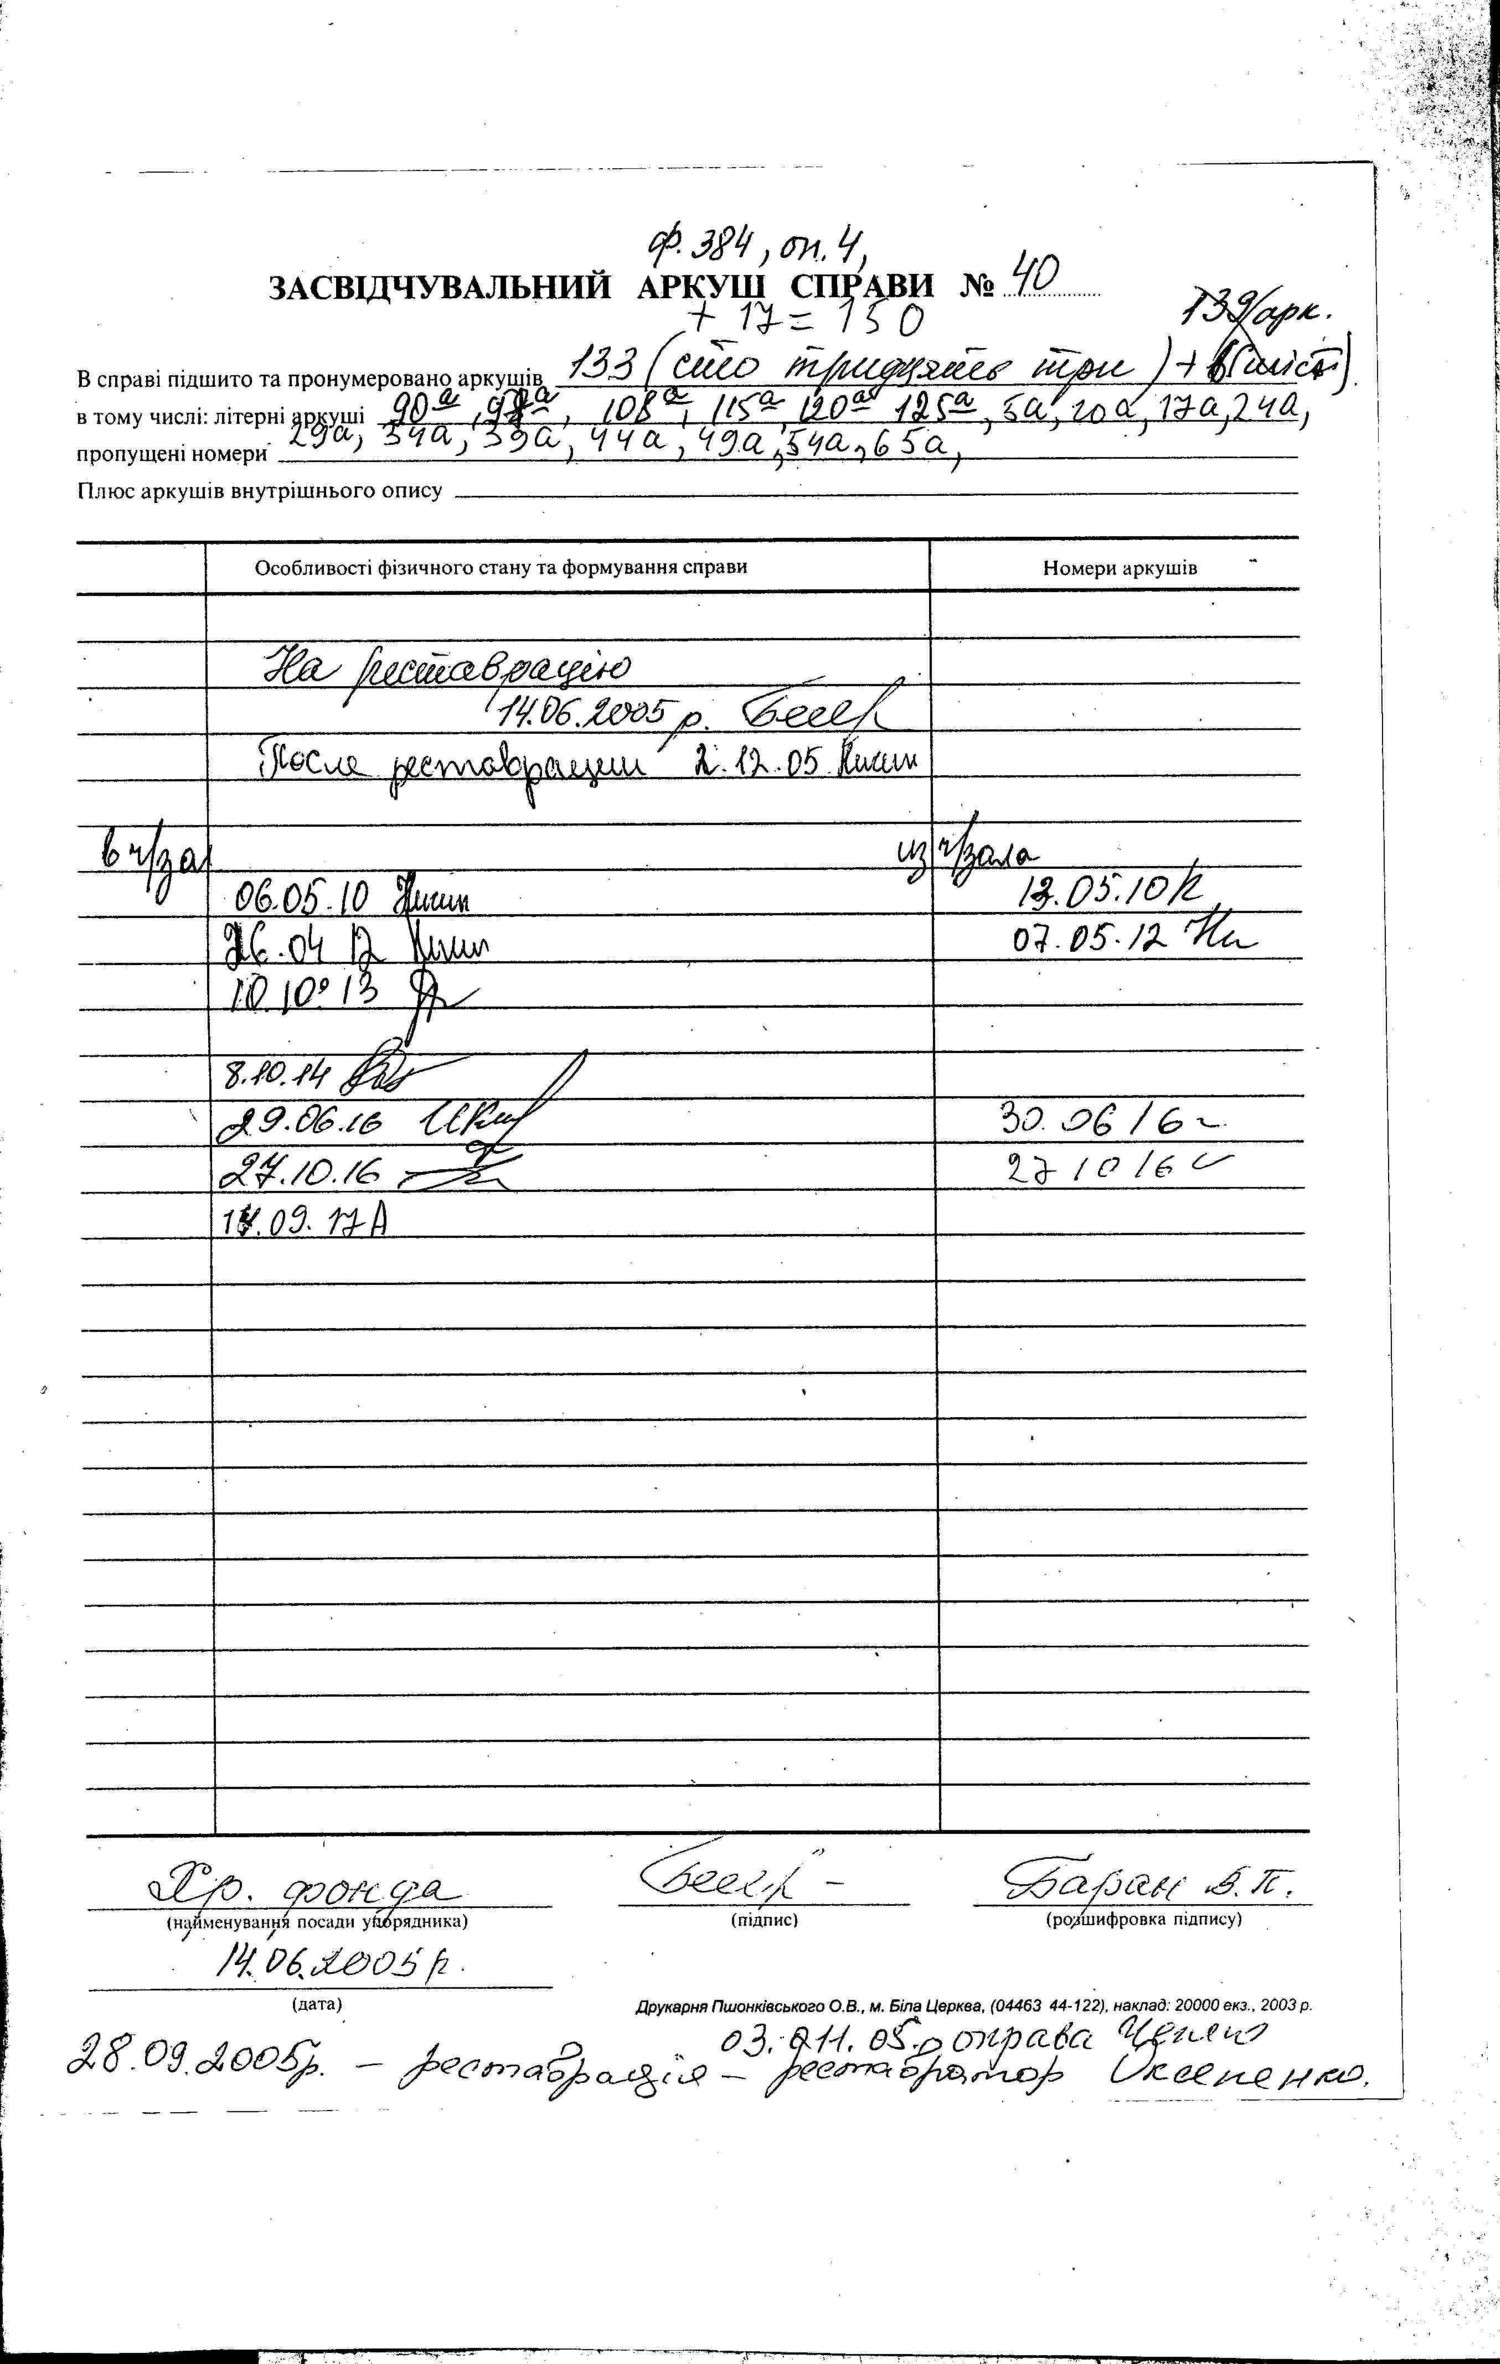 ф. 384, оп. 4,
ЗАСВІДЧУВАЛЬНИЙ АРКУШ СПРАВИ № 40
+ 17 = 150
139 арк.
В справі підшито та пронумеровано аркушів 133 (сто тридцять три) + 6 (шість)
в тому числі: літерні аркуші 90а, 98а, 108а, 115а, 120а, 125а, 5а, 10а, 17а, 24а,
29а, 34а, 39а, 44а, 49а, 54а, 65а,
пропущені номери
Плюс аркушів внутрішнього опису
Особливості фізичного стану та формування справи Номери аркушів
На реставрацію
14.06.2005 р.
После реставрации 2.12.05
в ч/зал из ч/зала
06.05.10 13.05.10
26.04 12 07.05.12
10.10.13
8.10.14
29.06.16 30.06 16
27.10.16 27 10 16
14.09.17
Хр. фонда Баран В.П.
(найменування посади упорядника) (підпис) (розшифровка підпису)
14.06.2005 р.
(дата)
Друкарня Пшонківського О.В., м. Біла Церква, (04463 44-122), наклад: 20000 екз., 2003 р.
03. 11. 05. оправа
28.09.2005р. – реставрація – реставратор